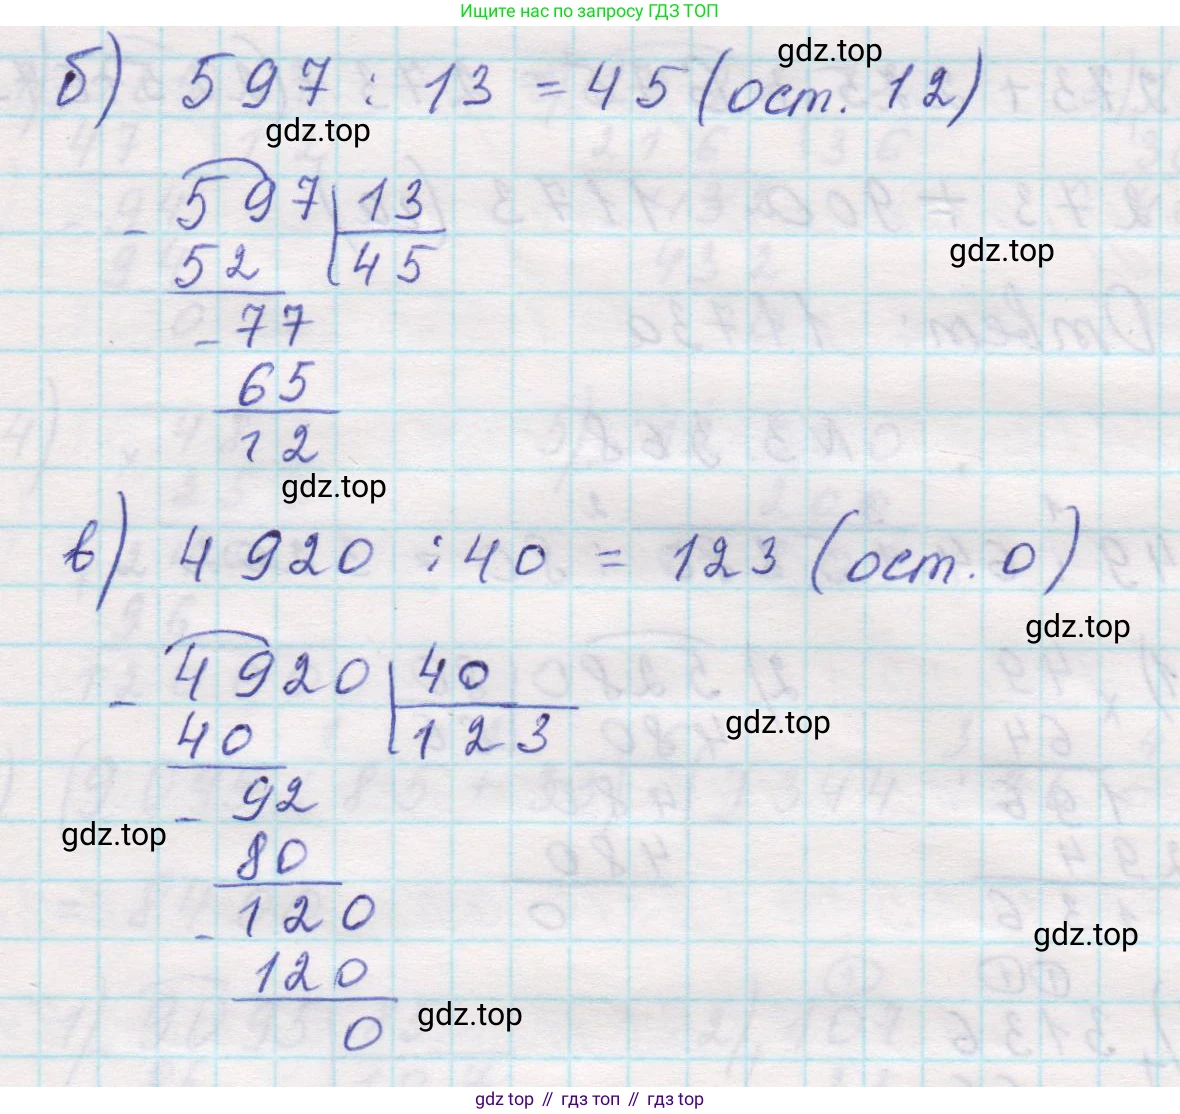 Ищите нас по запросу ГДЗ ТОП
gdz.top
б) 597 : 13 = 45 (ост. 12)
gdz.top
- 597 | 13
52 | 45
gdz.top
- 77
65
12
gdz.top
в) 4920 : 40 = 123 (ост. 0)
gdz.top
- 4920 | 40
40 | 123
gdz.top
- 92
gdz.top
80
- 120
gdz.top
120
gdz.top
0
gdz top // гдз топ // gdz top